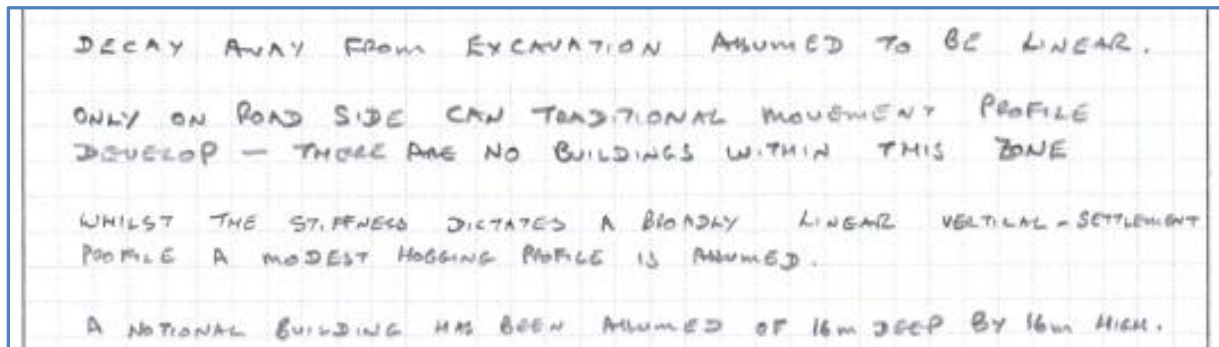 DECAY AWAY FROM EXCAVATION ASSUMED TO BE LINEAR.
ONLY ON ROAD SIDE CAN TRADITIONAL MOVEMENT PROFILE
DEVELOP - THERE ARE NO BUILDINGS WITHIN THIS ZONE
WHILST THE STIFFNESS DICTATES A BROADLY LINEAR VERTICAL-SETTLEMENT
PROFILE A MODEST HOGGING PROFILE IS ASSUMED.
A NOTIONAL BUILDING HAS BEEN ASSUMED OF 16m DEEP BY 16m HIGH.